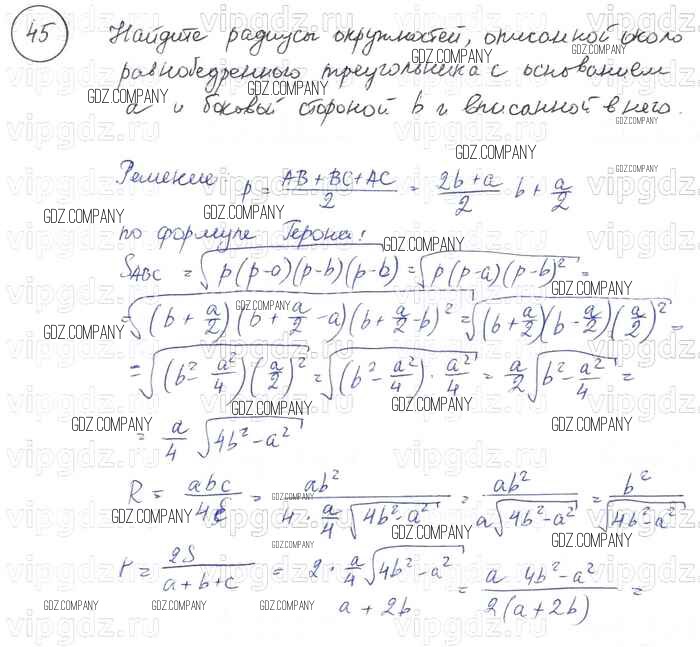 45 Найдите радиусы окружностей, описанной около
равнобедренного треугольника с основанием
a и боковой стороной b и вписанной в него.
Решение p = (AB+BC+AC)/2 = (2b+a)/2 b + a/2
по формуле Герона:
S_ABC = √(p(p-a)(p-b)(p-b)) = √(p(p-a)(p-b)²) =
= √((b + a/2)(b + a/2 - a)(b + a/2 - b)²) = √((b + a/2)(b - a/2)(a/2)²) =
= √((b² - a²/4)(a/2)²) = √((b² - a²/4) · a²/4) = a/2 √(b² - a²/4) =
= a/4 √(4b² - a²)
R = abc/4S = ab²/(4 · a/4 √(4b² - a²)) = ab²/(a√(4b² - a²)) = b²/√(4b² - a²)
r = 2S/(a+b+c) = 2 · a/4 √(4b² - a²)/(a + 2b) = a 4b² - a²/(2(a + 2b)) =
GDZ.COMPANY
vipgdz.ru